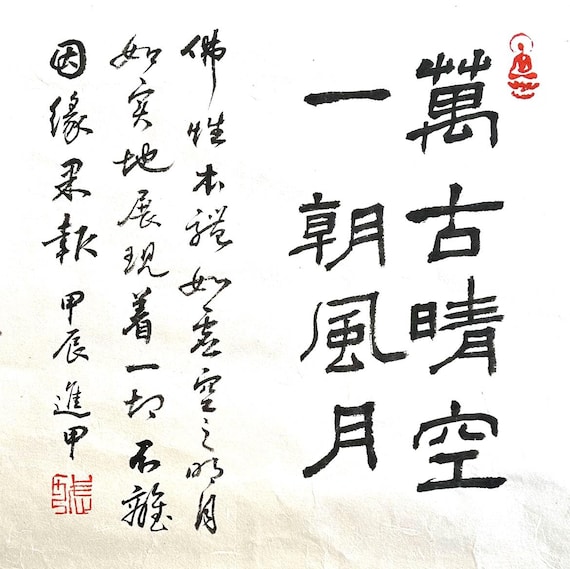 萬古晴空
一朝風月
佛性本體如虛空之明月
如实地展現着一切不離
因緣果報 甲辰進甲